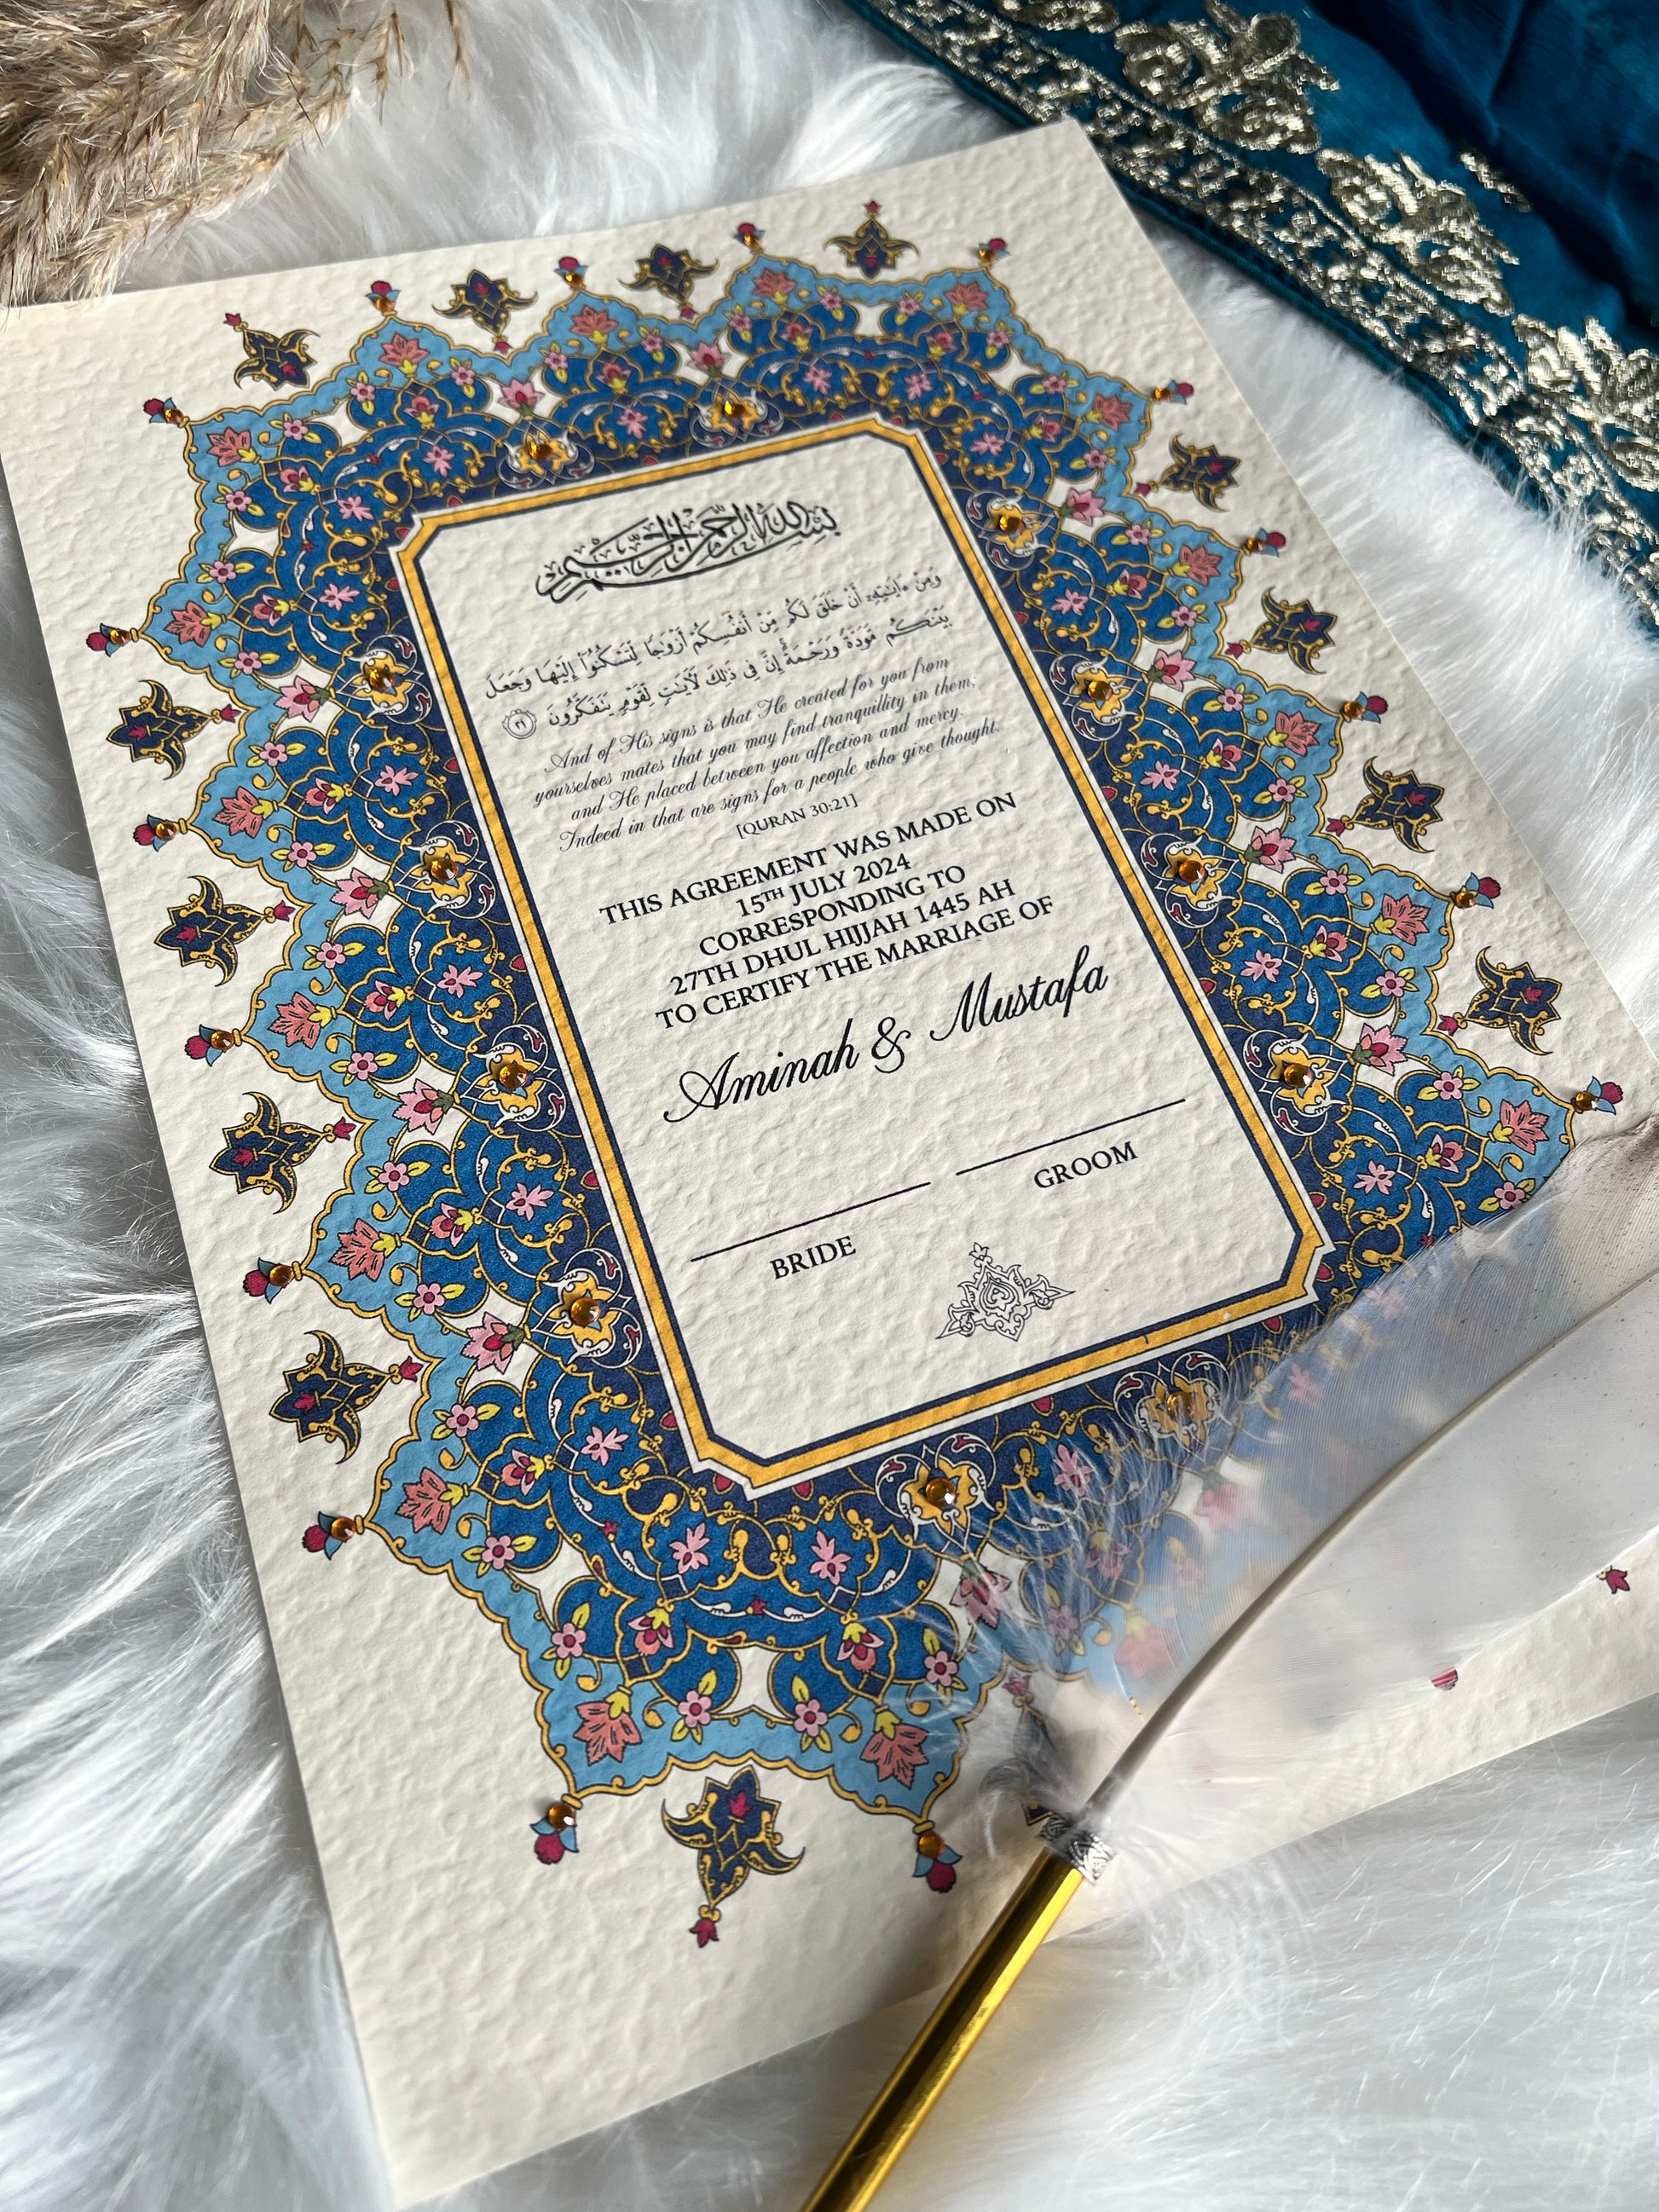 بسم الله الرحمن الرحيم
وَمِنْ ءَايَٰتِهِۦٓ أَنْ خَلَقَ لَكُم مِّنْ أَنفُسِكُمْ أَزْوَٰجًا لِّتَسْكُنُوٓا۟ إِلَيْهَا وَجَعَلَ
بَيْنَكُم مَّوَدَّةً وَرَحْمَةً إِنَّ فِى ذَٰلِكَ لَءَايَٰتٍ لِّقَوْمٍ يَتَفَكَّرُونَ ٢١
And of His signs is that He created for you from
yourselves mates that you may find tranquillity in them;
and He placed between you affection and mercy.
Indeed in that are signs for a people who give thought.
[QURAN 30:21]
THIS AGREEMENT WAS MADE ON
15TH JULY 2024
CORRESPONDING TO
27TH DHUL HIJJAH 1445 AH
TO CERTIFY THE MARRIAGE OF
Aminah & Mustafa
BRIDE
GROOM